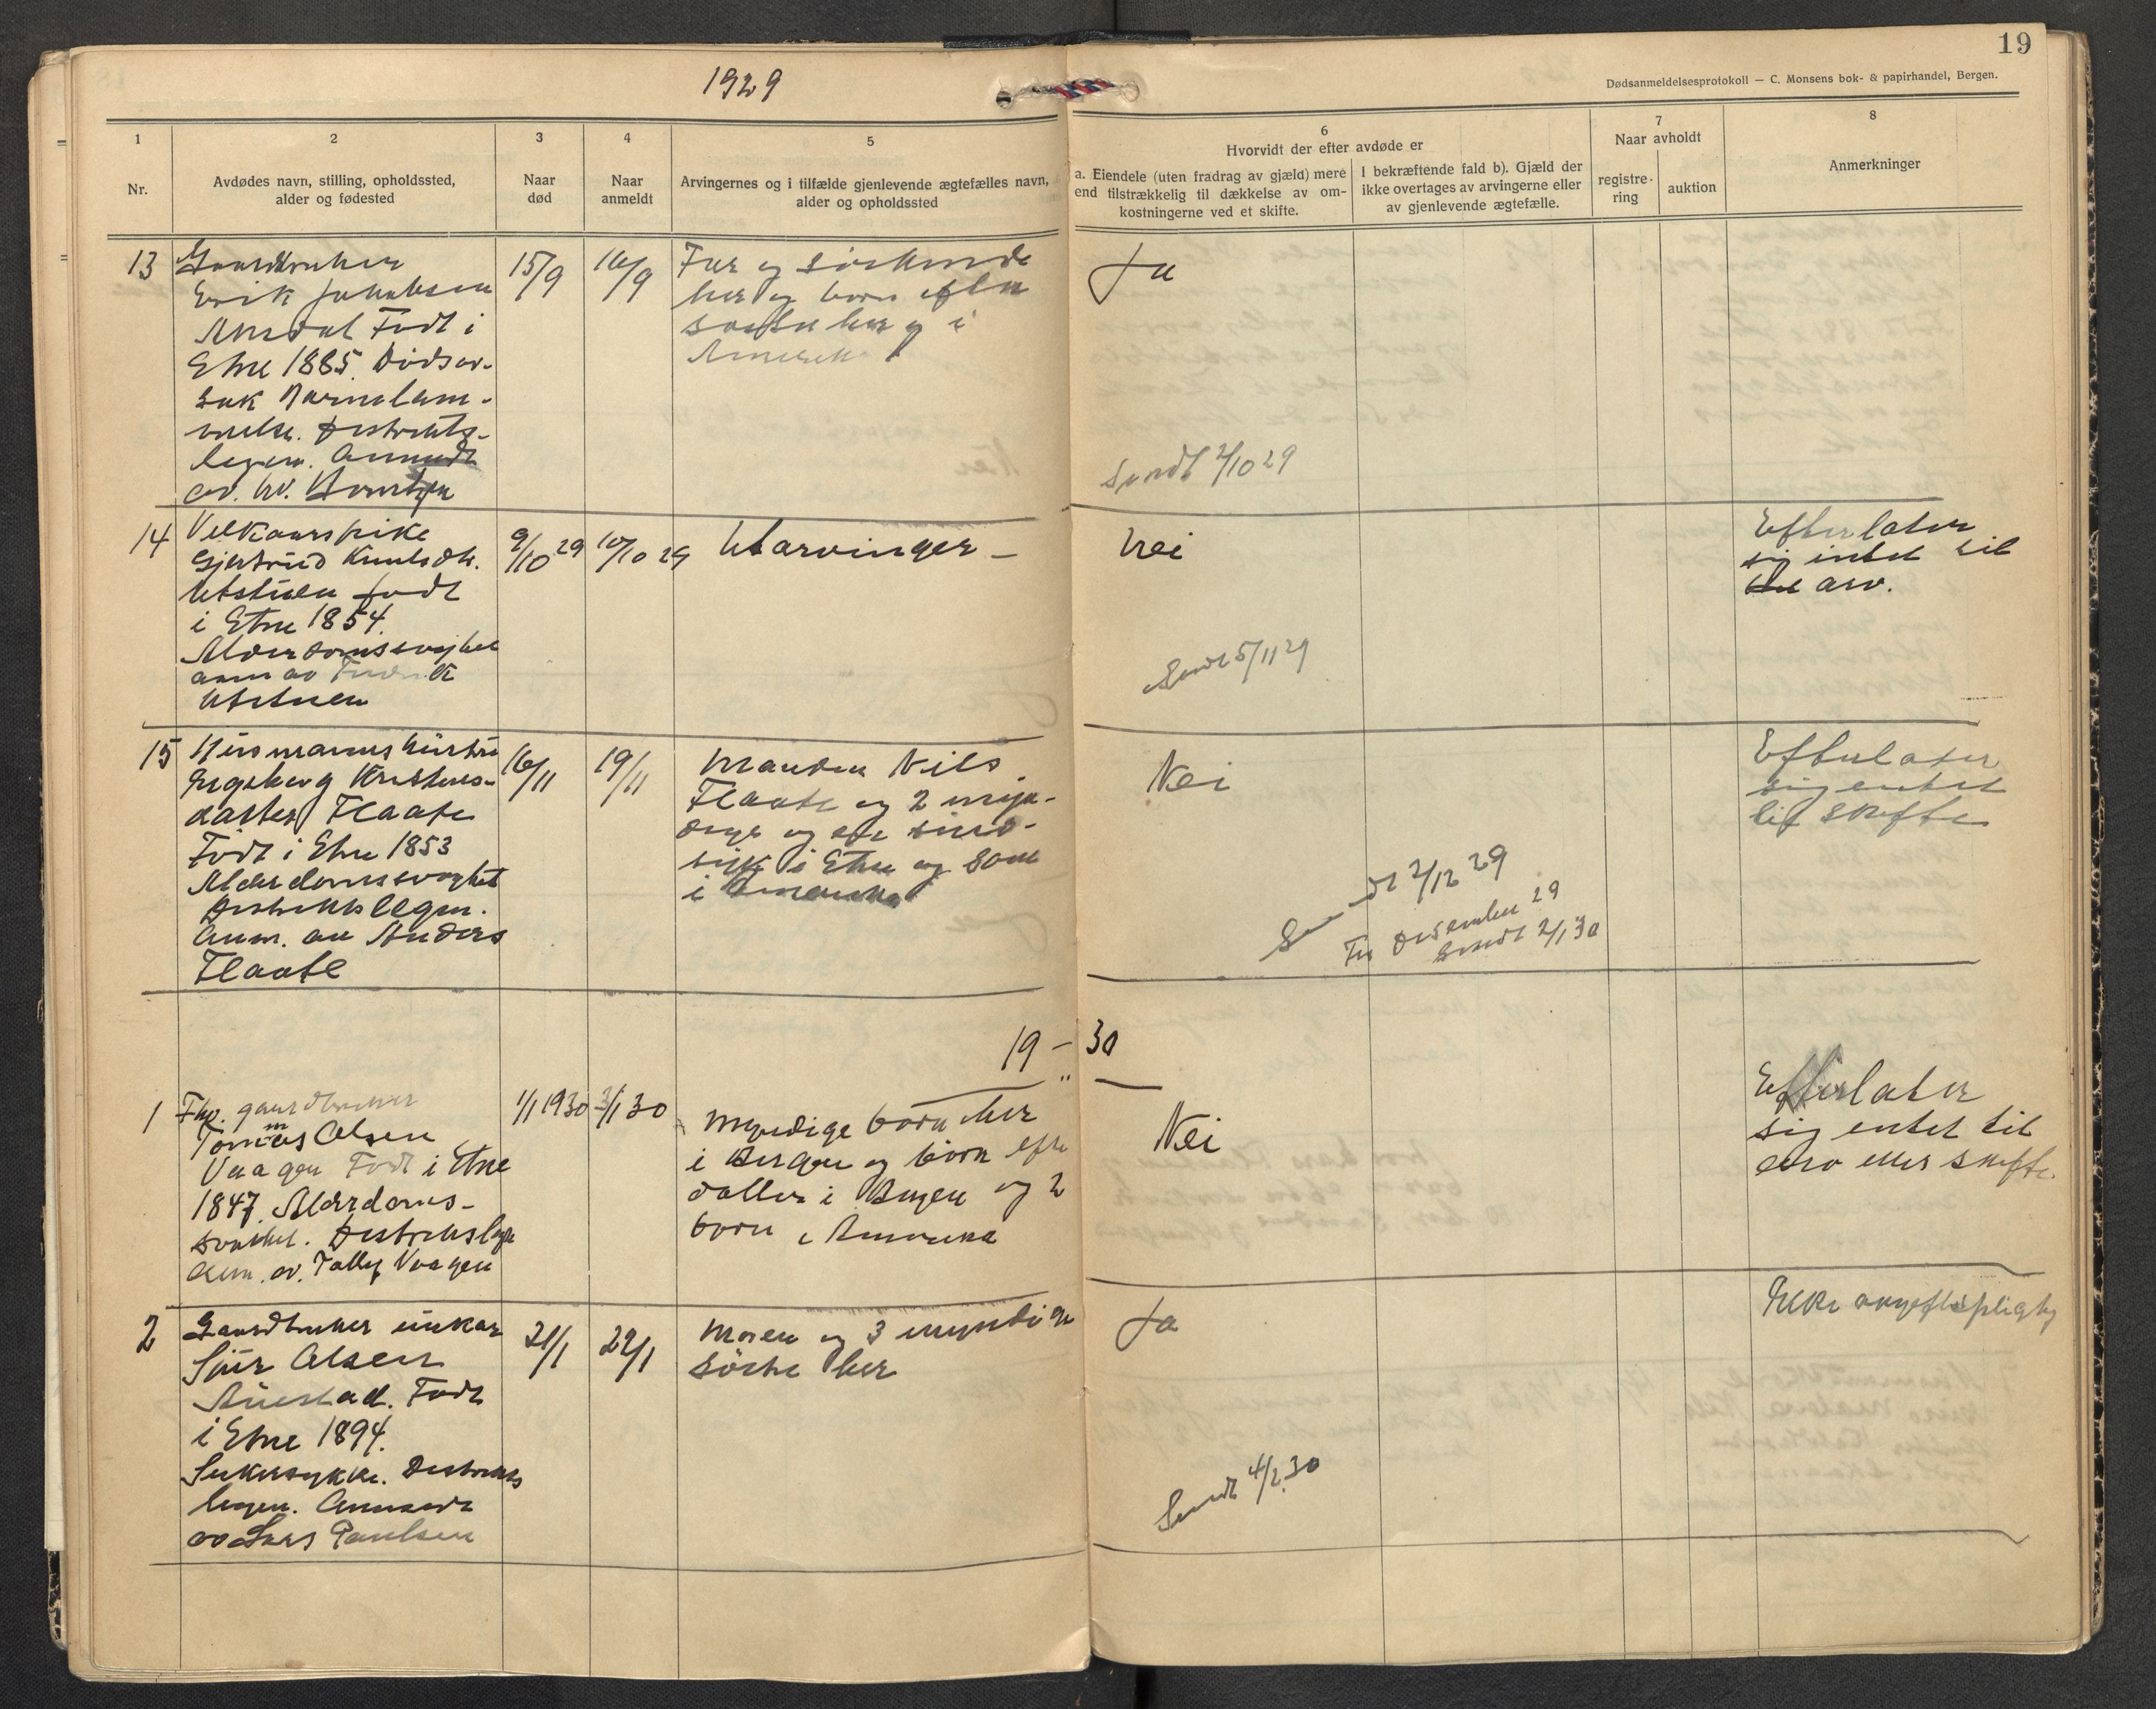 1929
19
Dødsanmeldelsesprotokoll — C. Monsens bok- & papirhandel, Bergen.
1
Nr.
2
Avdødes navn, stilling, opholdssted,
alder og fødested
3
Naar
død
4
Naar
anmeldt
5
Arvingernes og i tilfælde gjenlevende ægtefælles navn,
alder og opholdssted
6
Hvorvidt der efter avdøde er
a. Eiendele (uten fradrag av gjæld) mere
end tilstrækkelig til dækkelse av om-
kostningerne ved et skifte.
I bekræftende fald b). Gjæld der
ikke overtages av arvingerne eller
av gjenlevende ægtefælle.
7
Naar avholdt
registre-
ring
auktion
8
Anmerkninger
13
Gaardbruker
Erik Jakobsen
Født i
Etne 1885. Dødsor-
sak
Distrikts-
legen. Anmeldt
av
15/9
16/9
Far og søskende
her og born efter
søster her og i
Amerika
Ja
Sendt 2/10 29
14
Velkaarspike
Gjertrud Knutsdtr.
Utstuen født
i Etne 1854.
Alderdomssvaghet
anm av
Utstuen
9/10 29
10/10 29
Utarvinger —
Nei
Sendt 5/11 29
Efterlater
sig intet til
arv.
15
Husmannshustru
Ingeborg Kristens-
datter Flaate
Født i Etne 1853
Alderdomssvaghet
Distriktslegen.
Anm. av Anders
Flaate
16/11
19/11
Manden Nils
Flaate og 2 myn-
dige
i Etne og
i Amerika
Nei
Sendt 2/12 29
For Desember 29
Sendt 2/1 30
Efterlater
sig entet
til skifte
19 — 30
1
Fhv. gaardbruker
Tomas Olsen
Vaagen Født i Etne
1847. Alderdoms-
svakhet. Distriktslege
Anm. av. Vaagen
1/1 1930
3/1 30
Myndige born her
i Bergen og born efter
datter i Bergen og 2
born i Amerika
Nei
Efterlater
sig entet til
arv eller skifte
2
Gaardbruker unkar
Sjur Olsen
Austad. Født
i Etne 1894.
Sukersykke. Distrikts
legen. Anmeldt
av Lars Paulsen
21/1
22/1
Moren og 3 myndige
søstre her
Ja
Sendt 4/2 30
Ikke avgiftspligtig